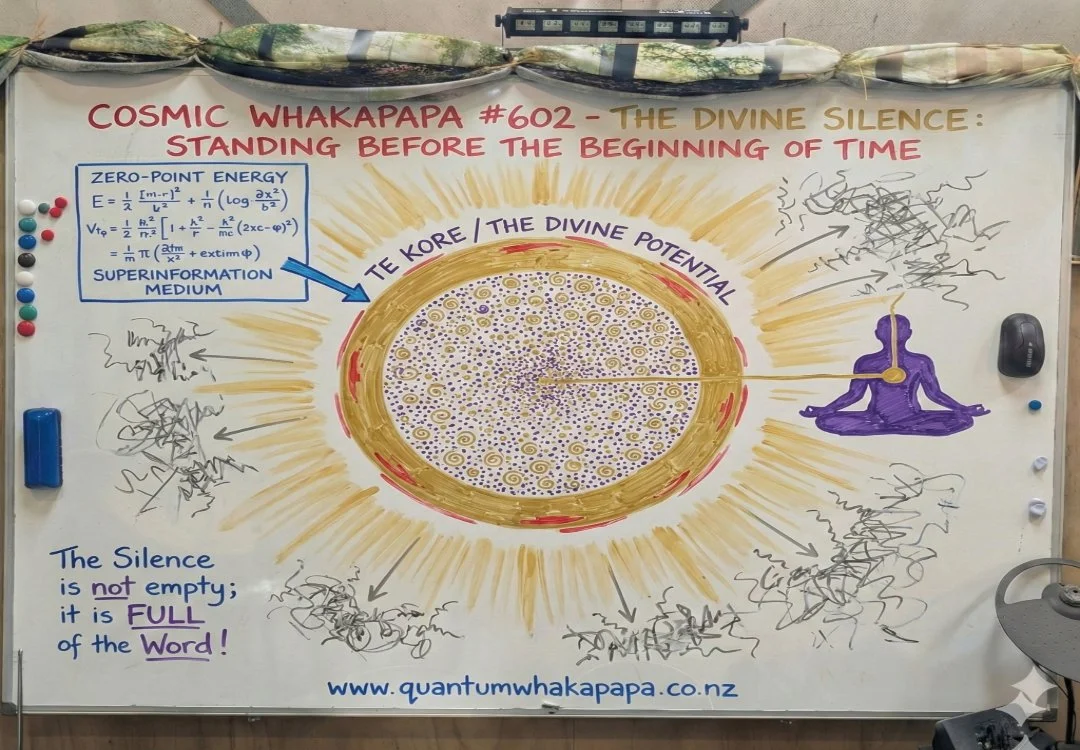 COSMIC WHAKAPAPA #602 - THE DIVINE SILENCE:
STANDING BEFORE THE BEGINNING OF TIME
ZERO-POINT ENERGY
E = 1/2 [m-r]²/b² + 1/n (log ∂x²/b²)
= 1/m π ( /x² + extimφ)
SUPERINFORMATION
MEDIUM
TE KORE / THE DIVINE POTENTIAL
The Silence
is not empty;
it is FULL
of the Word!
www.quantumwhakapapa.co.nz